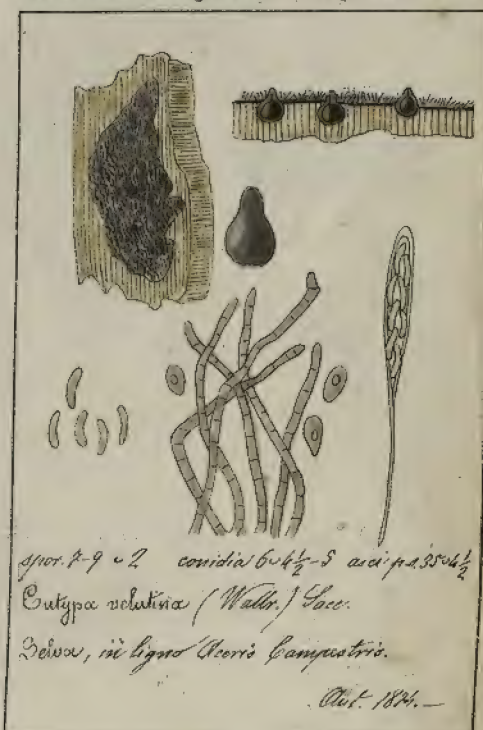 spor. 7-9 ∪ 2 conidia 6∪4½-5 asci p.s. 35∪4½
Eutypa velutina (Wallr.) Sacc.
Selva, in ligno Aceris Campestris.
Aut. 1874.—